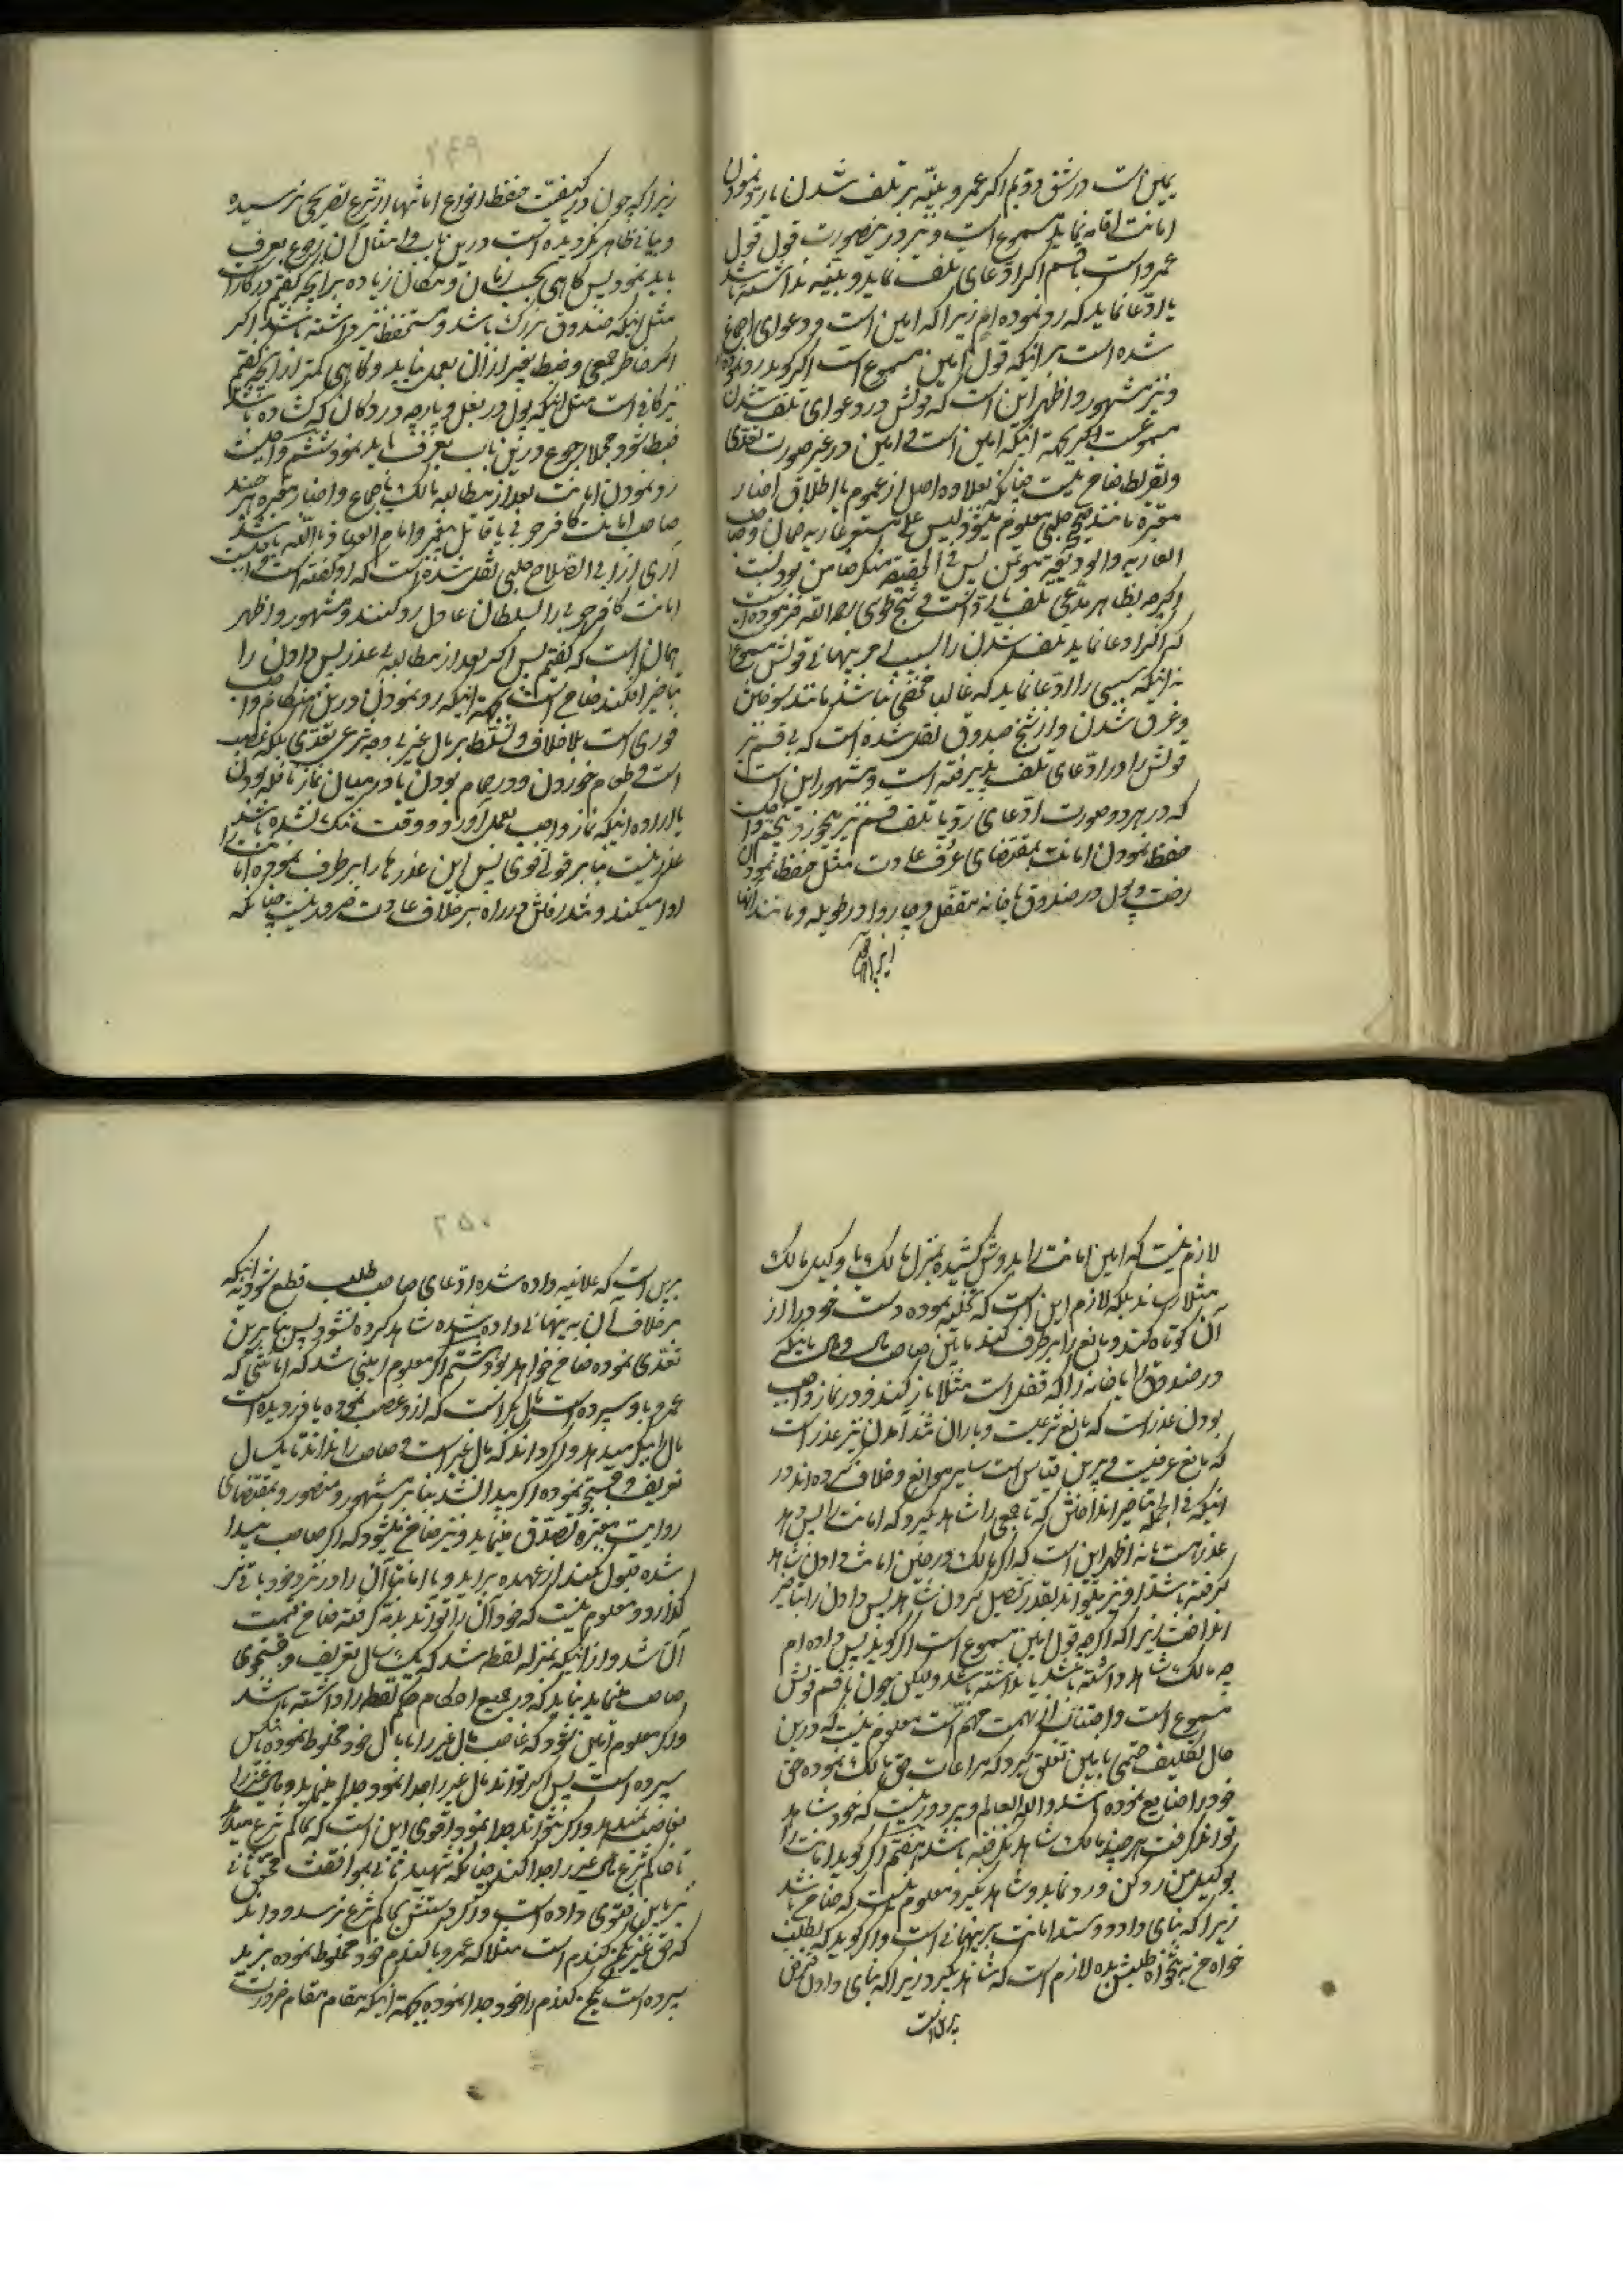 یمین است در شق دویم اگر عمرو بینه بر تلف شدن یا رد نمودن
امانت اقامه نماید مسموع است و نیز درینصورت قول قول
عمرو است با قسم اگر ادعای تلف نماید و بینه نداشته باشد
یا ادعا نماید که رد نموده ام زیرا که امین است و دعوای اجماع
شده است بر اینکه قول امین مسموع است اگر گوید رد نموده ام
و نیز مشهور و اظهر این است که قولش در دعوای تلف شدن
مسموعست بجهة اینکه امین است و امین در غیر صورت تعدی
و تفریط ضامن نیست چنانکه بعلاوه اصل از عموم یا اطلاق اخبار
معتبره مانند صحیح حلبی معلوم میشود لیس علی مستعیر عاریة ضمان و صاحب
العاریة والودیعة مؤتمن پس فی الحقیقه منکر ضامن بودنست
اگرچه بظاهر مدعی تلف یا رد است و شیخ طوسی رحمه الله فرموده است
که اگر ادعا نماید تلف شدن را بسبب امر پنهانی قولش مسموع
نه اینکه سببی را ادعا نماید که غالبا مخفی نباشد مانند سوختن
و غرق شدن و از شیخ صدوق نقل شده است که بی قسم نیز
قولش را در ادعای تلف پذیرفته است و مشهور این است
که در هر دو صورت ادعای رد یا تلف قسم نیز میخورد پنجم واجب
حفظ نمودن امانت بمقتضای عرف و عادت مثل حفظ نمودن
رخت و پول در صندوق یا خانه مقفل و چاروا در طویله و مانند آنها
زیرا که چون در کیفیت حفظ انواع امانتها از شرع تصریحی نرسیده
و بیانی ظاهر نگردیده است درین باب و امثال آن رجوع بعرف
باید نمود پس گاهی بحسب زمان و مکان زیاده بر آنچه گفتیم در کار است
مثل اینکه صندوق بزرگ باشد و مستحفظ نیز داشته باشد اگر
خاطر جمعی و ضبط بغیر از آن بعمل نیاید و گاهی کمتر از آنچه گفتیم
نیز کافی است مثل اینکه پول در بغل و پارچه در دکان گشاده باشد
ضبط شود مجملا رجوع درین باب بعرف باید نمود ششم واجبست
رد نمودن امانت بعد از مطالبه مالک باجماع و اخبار معتبره هر چند
صاحب امانت کافر حربی یا قاتل پیغمبر و امام العیاذ بالله باشد
آری از ابی الصلاح حلبی نقل شده است که او گفته است واجبست
امانت کافر حربی را بسلطان عادل رد کنند و مشهور و اظهر
همان است که گفتیم پس اگر بعد از مطالبه بی عذر پس دادن را
تأخیر افکند ضامن است بجهة اینکه رد نمودن درین هنگام واجب
فوری است بلا خلاف و تسلط بر مال غیر بی وجه شرعی تعدی بلکه غصب
است و طعام خوردن و در حمام بودن یا در میان نماز نافله بودن
یا اراده اینکه نماز واجب بعمل آورد و وقت تنگ نشده باشد
عذر نیست بنا بر قول قوی پس این عذرها را برطرف نموده امانت را
ادا میکند و تند رفتن در راه بر خلاف عادت ضرور نیست چنانکه
لازم نیست که امین امانت را بدوش کشیده بمنزل مالک یا وکیل مالک
مثلا رساند بلکه لازم این است که تخلیه نموده دست خود را از
آن کوتاه کند و مانع را برطرف کند مابین صاحب مال و مال باینکه
در صندوق یا خانه را که قفل است مثلا باز کند و در نماز واجب
بودن عذر است که مانع شرعیست و باران تند آمدن نیز عذر است
که مانع عرفیست و برین قیاس است سایر موانع و خلاف کرده اند در
اینکه فی الجمله تأخیر انداختن که تا جمعی را شاهد بگیرد که امانت را پس دهد
عذر هست یا نه اظهر این است که اگر مالک در حین امانت دادن شاهد
گرفته باشد او نیز میتواند بقدر تحصیل کردن شاهد پس دادن را بتأخیر
انداخت زیرا که اگرچه قول امین مسموع است اگر گوید پس داده ام
چه مالک شاهد داشته باشد یا نداشته باشد ولیکن چون با قسم قولش
مسموع است و اجتناب از تهمت مهم است معلوم نیست که درین
حال تکلیف حتمی بامین تعلق گیرد که مراعات حق مالک نموده حق
خود را ضایع نموده باشد والله العالم و پر دور نیست که خود شاهد
تواند گرفت هر چند مالک شاهد نگرفته باشد هفتم اگر گوید امانت را
بوکیل من رد کن و رد نماید و شاهد نگیرد معلوم نیست که ضامن باشد
زیرا که بنای داد و ستد امانت بر پنهانی است و اگر گوید که بطلب
خواه من بده لازم است که شاهد بگیرد زیرا که بنای دادن قرض
برین است
برین است که علانیه داده شده ادعای صاحب طلب قطع شود نه اینکه
بر خلاف آن به پنهانی داده شده شاهد گرده نشود پس بنابرین
تعدی نموده ضامن خواهد بود هشتم اگر معلوم امین شد که امانتی که
عمرو باو سپرده است مال بکر است که ازو غصب نموده یا دزدیده است
مال را ببکر میدهد و اگر داند که مال غیر است و صاحب را نداند تا یکسال
تعریف و جستجو نموده اگر پیدا نشد بنا بر مشهور و منصور و بمقتضای
روایت معتبره تصدق مینماید و نیز ضامن میشود که اگر صاحب پیدا
شده قبول نکند از عهده برآید و یا امانتا آن را در نزد خود باقی
گذارد و معلوم نیست که خود آن را تواند بذمه گرفته ضامن قیمت
آن شد و از اینکه بمنزله لقطه شد که یک سال تعریف و جستجوی
صاحب مینماید نباید که در جمیع احکام حکم لقطه را داشته باشد
و اگر معلوم امین شود که غاصب مال غیر را با مال خود مخلوط نموده باو
سپرده است پس اگر تواند مال غیر را جدا نمود جدا مینماید و مال غیر را
بغاصب نمیدهد و اگر نتواند جدا نمود اقوی این است که بحاکم شرع میدهد
تا حاکم شرع مال غیر را جدا کند چنانکه شهید ثانی بموافقت محقق ثانی
نیز باین فتوی داده است و اگر دستش بحاکم شرع نرسد و داند
که حق غیر پنج من گندم است مثلا که عمرو با گندم خود مخلوط نموده بزید
سپرده است پنج من گندم را خود جدا نموده بجهة اینکه مقام مقام ضرورت